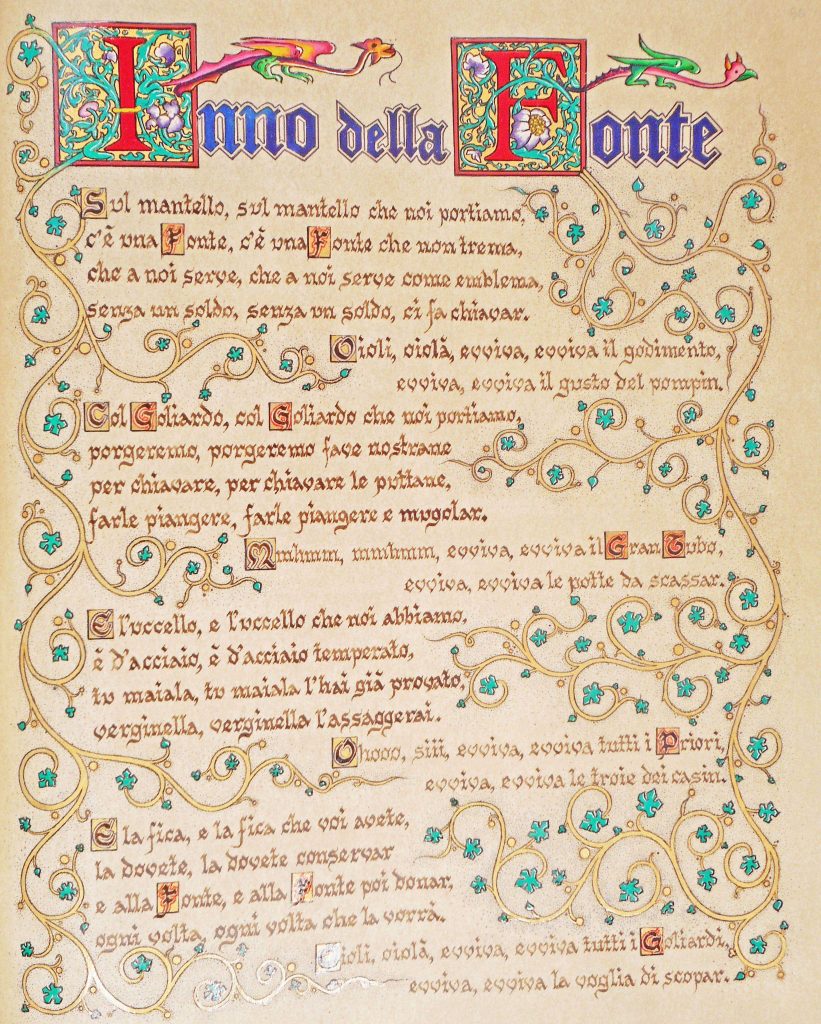 Inno della Fonte
Sul mantello, sul mantello che noi portiamo,
c'è una Fonte, c'è una Fonte che non trema,
che a noi serve, che a noi serve come emblema,
senza un soldo, senza un soldo, ci fa chiavar.
Oioli, oiolà, evviva, evviva il godimento,
evviva, evviva il gusto del pompin.
Col Goliardo, col Goliardo che noi portiamo,
porgeremo, porgeremo fave nostrane
per chiavare, per chiavare le puttane,
farle piangere, farle piangere e mugolar.
Mmhmm, mmhmm, evviva, evviva il Gran Tubo,
evviva, evviva le potte da scassar.
E l'uccello, e l'uccello che noi abbiamo,
è d'acciaio, è d'acciaio temperato,
tu maiala, tu maiala l'hai già provato,
verginella, verginella l'assaggerai.
Ohooo, siii, evviva, evviva tutti i Priori,
evviva, evviva le troie dei casin.
E la fica, e la fica che voi avete,
la dovete, la dovete conservar
e alla Fonte, e alla Fonte poi donar,
ogni volta, ogni volta che la vorrà.
Oioli, oiolà, evviva, evviva tutti i Goliardi,
evviva, evviva la voglia di scopar.